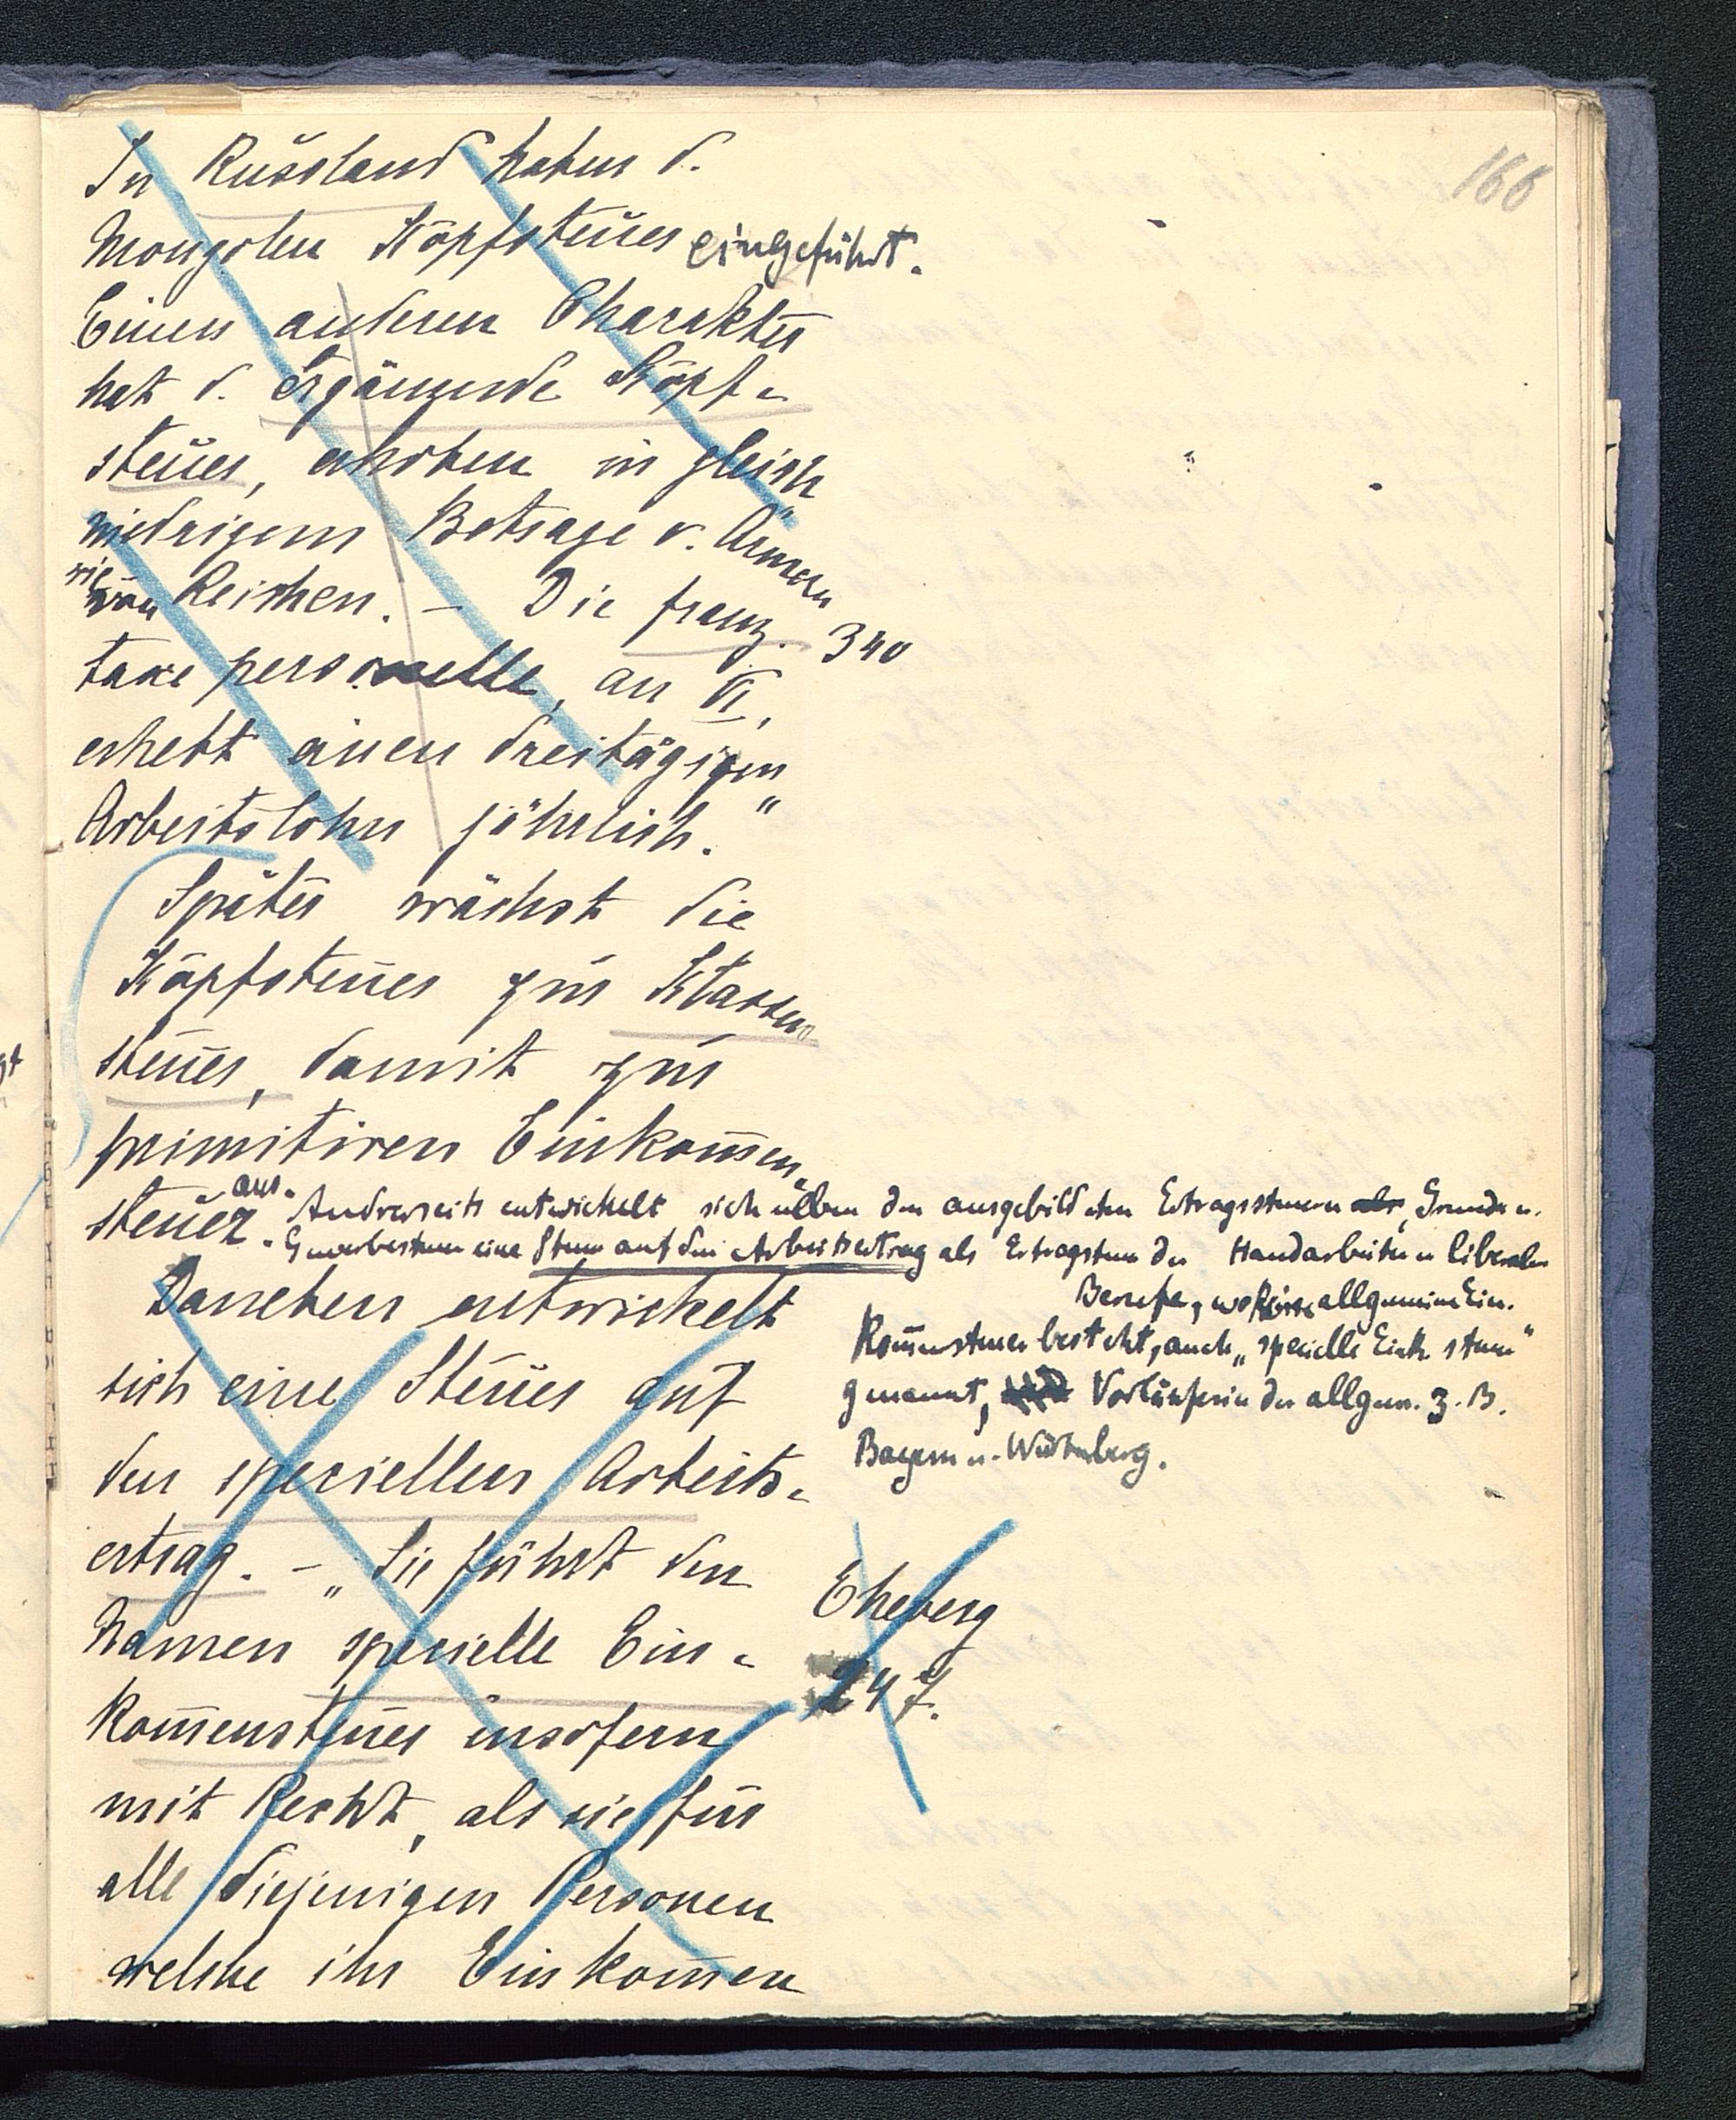 166
In Russland haben d.
Mongolen Kopfsteuer eingeführt.
Einen anderen Charakter
hat d. Ergänzende Kopf-
steuer, erhoben in gleich
niedrigem Betrage v. Armen
wie Reichen. – Die franz. 340
taxe personelle, an VI,
erhebt einen dreitägigen
Arbeitslohn jährlich."
Später wächst die
Kopfsteuer zur Klassen
steuer, damit zur
primitiven Einkom̄en-
steuer aus.
Andrerseits entwickelt sich neben den ausgebildeten Ertragssteuern als Grund- u.
Gewerbesteuer eine Steuer auf den Arbeitsertrag als Ertragsteuer der Handarbeiter u liberalen
Berufe, wo keine allgemeine Ein-
kom̄ensteuer besteht, auch „specielle Eink. steuer"
genannt, Vorläuferin der allgem. z. B.
Bayern u. Würtemberg.
Daneben entwickelt
sich eine Steuer auf
den speciellen Arbeits-
ertrag. – „Sie führt den
Namen specielle Ein-
kom̄ensteuer insofern
mit Recht, als sie für
alle diejenigen Personen
welche ihr Einkom̄en
Eheberg
247.